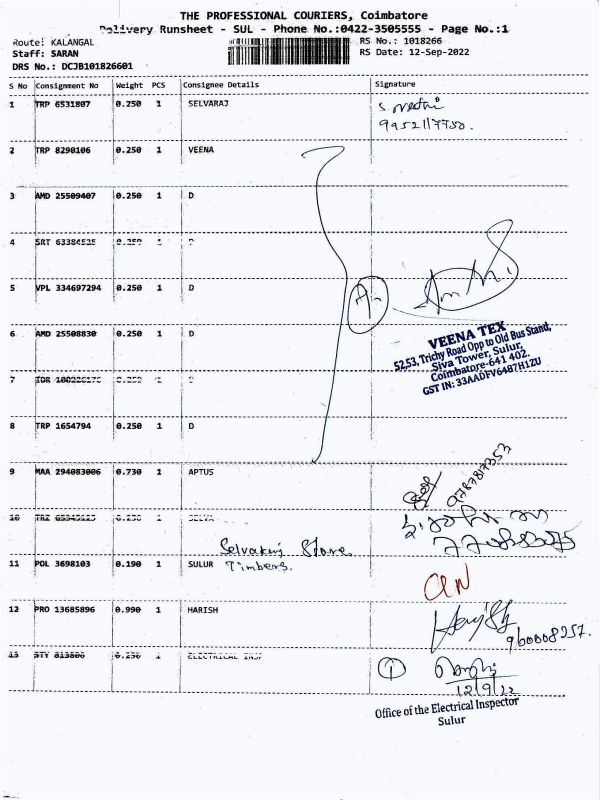 THE PROFESSIONAL COURIERS, Coimbatore
Delivery Runsheet - SUL - Phone No.:0422-3505555 - Page No.:1
Route: KALANGAL
RS No.: 1018266
Staff: SARAN
RS Date: 12-Sep-2022
DRS No.: DCJB101826601
S No Consignment No Weight PCS Consignee Details Signature
1 TRP 6531807 0.250 1 SELVARAJ
2 TRP 8290106 0.250 1 VEENA
3 AMD 25509407 0.250 1 D
4 SRT 63384525 0.250 1 D
5 VPL 334697294 0.250 1 D
6 AMD 25508830 0.250 1 D
7
8 TRP 1654794 0.250 1 D
VEENA TEX
52,53, Trichy Road Opp to Old Bus Stand,
Siva Tower, Sulur,
Coimbatore-641 402.
GST IN: 33AADFV6487H1ZU
9 MAA 294083006 0.730 1 APTUS
9787817353
10 SELVA
Selvakumj Store
11 POL 3698103 0.190 1 SULUR Timbers.
12 PRO 13685896 0.990 1 HARISH
9600008257.
13 STY 813800 0.250 1 ELECTRICAL INSP
1
12/9/22
Office of the Electrical Inspector
Sulur